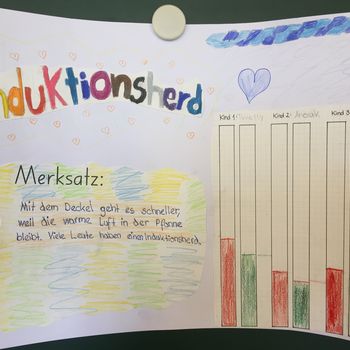 Induktionsherd
Kind 1: Kind 2: Kind 3
Merksatz:
Mit dem Deckel geht es schneller,
weil die warme Luft in der Pfanne
bleibt. Viele Leute haben einen Induktionsherd.